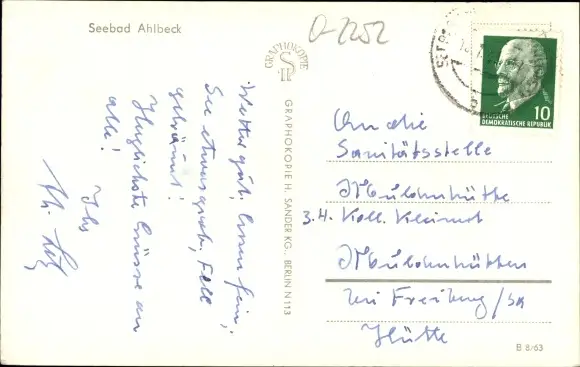 Seebad Ahlbeck
O-2252
Wetter gut, Essen fein,
See etwas grob, Fell
gebräunt!
Herzlichste Grüsse an
alle!
Ihr
GRAPHOKOPIE
GRAPHOKOPIE H. SANDER KG., BERLIN N 113
10
DEUTSCHE
DEMOKRATISCHE REPUBLIK
An die
Sanitätsstelle
Muldenhütte
z.H. Koll.
Muldenhütten
bei Freiberg/Sa
Hütte
B 8/63